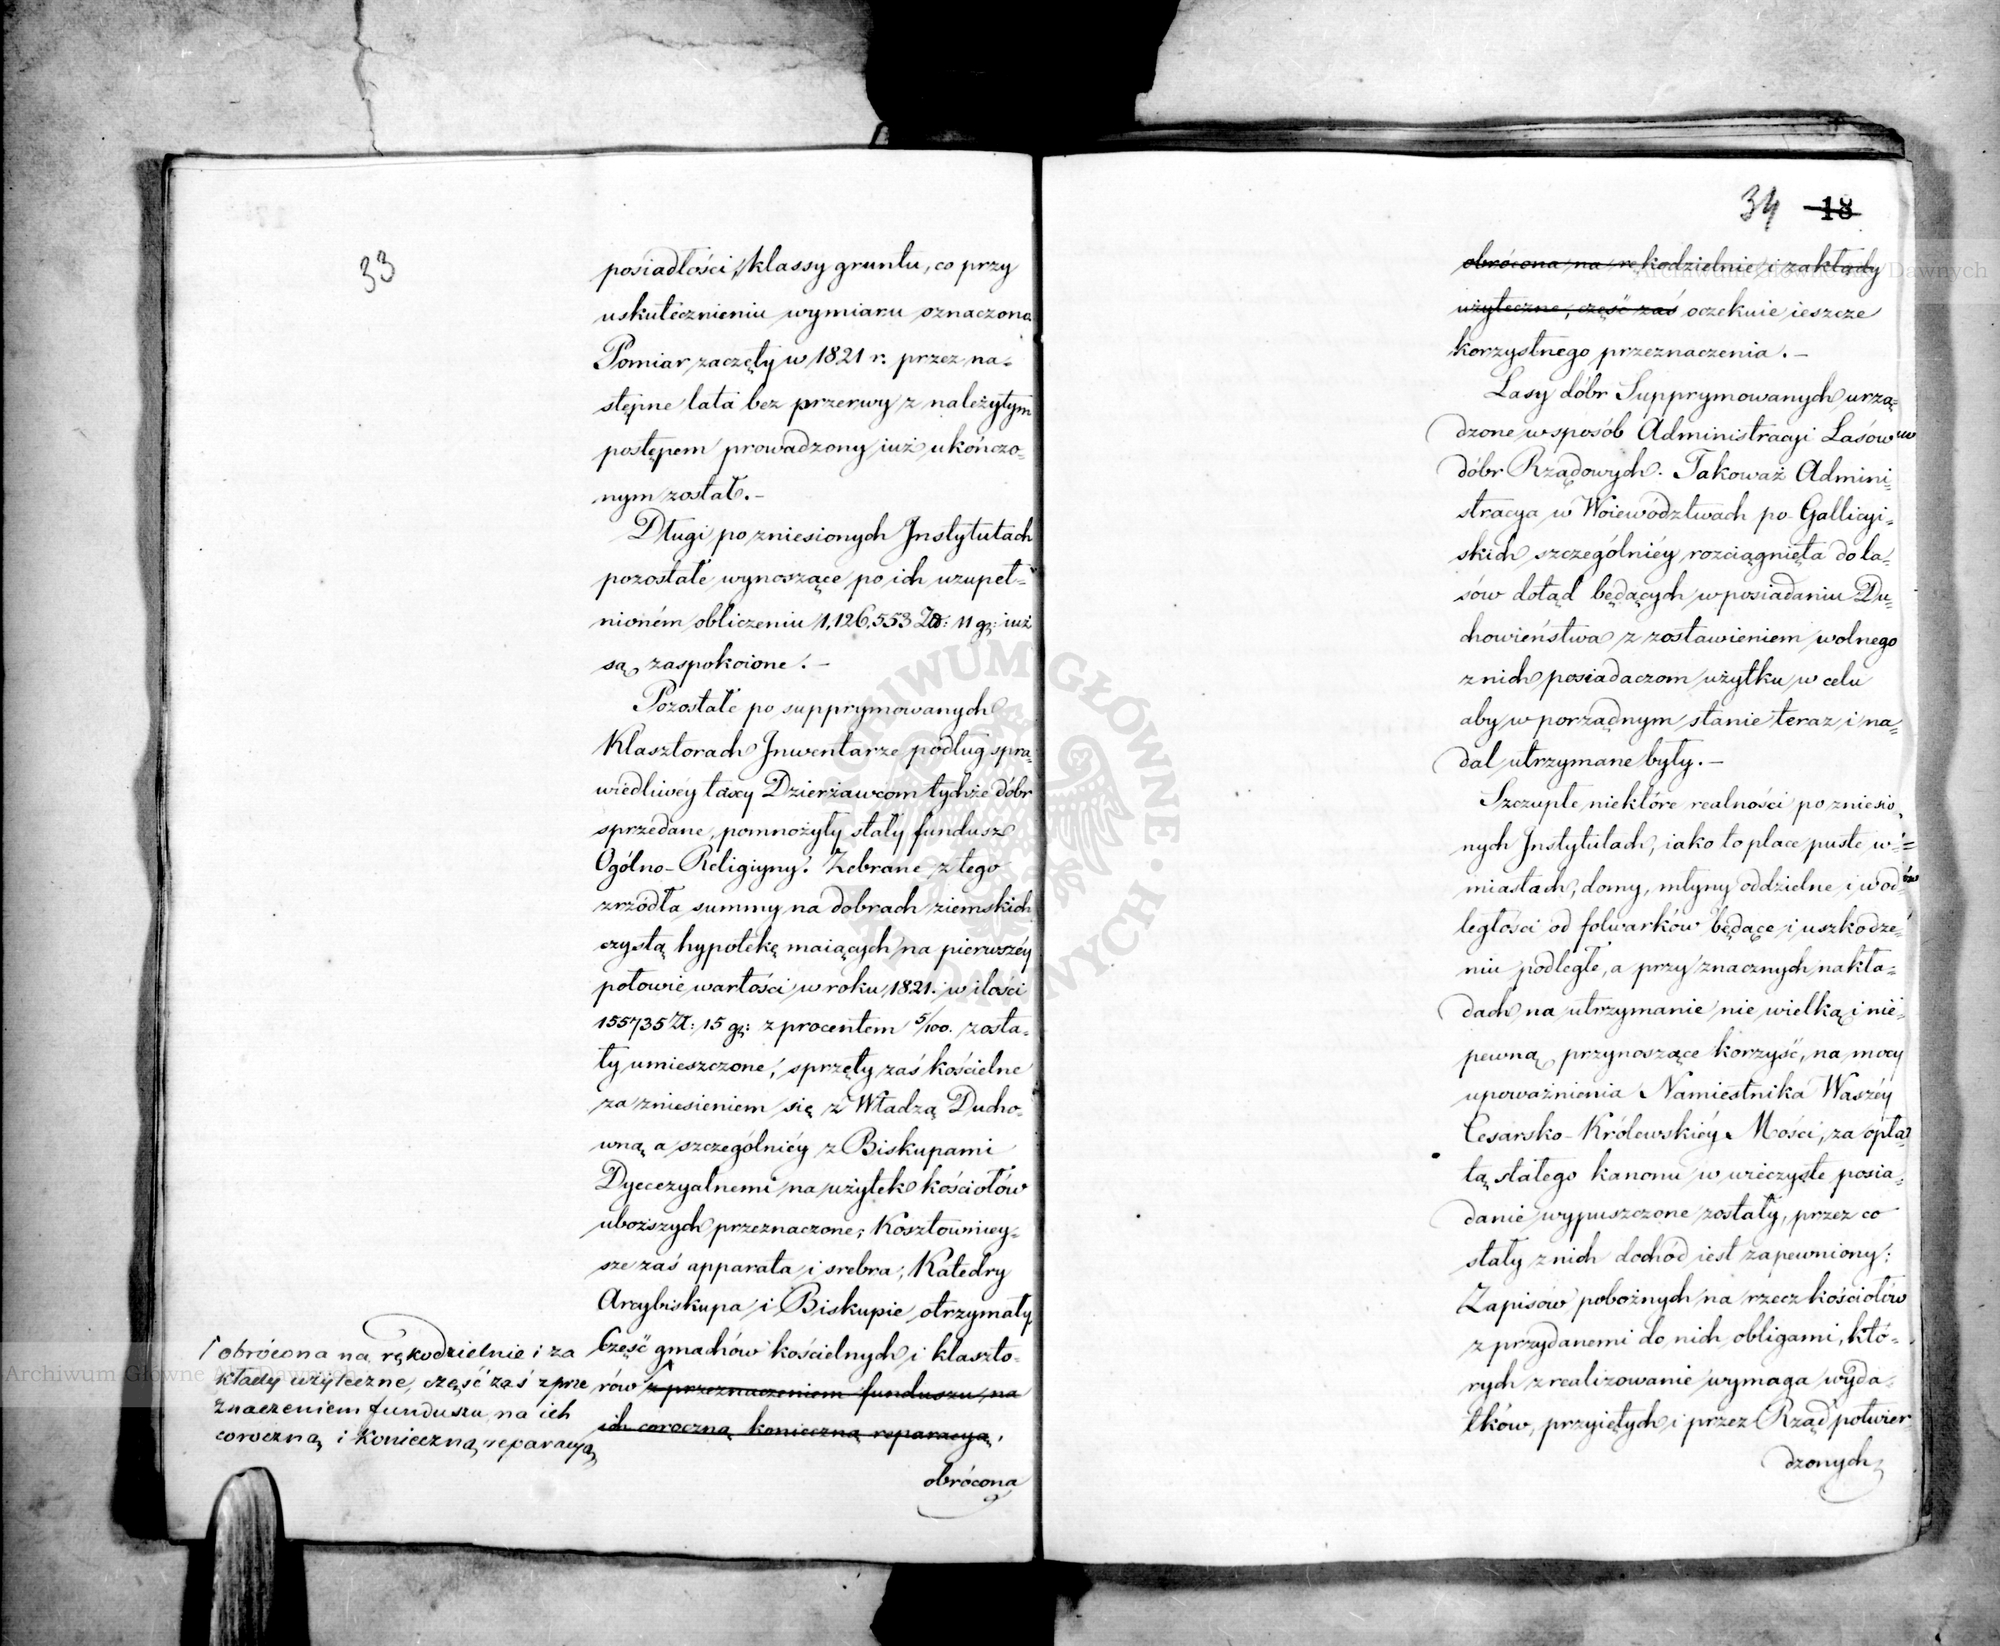 33
posiadłości, klassy gruntu, co przy
uskutecznieniu wymiaru oznaczona
Pomiar zaczęty w 1821 r. przez na-
stępne lata bez przerwy z należytym
postępem prowadzony iuż ukończo-
nym został. –
Długi po zniesionych Instytutach
pozostałe wynoszące po ich uzupeł-
nioném obliczeniu 1,126,553 Zł: 11 gr: iuż
są zaspokoione. –
Pozostałe po supprymowanych
Klasztorach Inwentarze podług spra-
wiedliwéy taxy Dzierżawcom tychże dóbr
sprzedane, pomnożyły stały fundusz
Ogólno-Religiyny. Zebrane z tego
zrzódła summy na dobrach ziemskich
czystą hypotekę maiących na pierwszéy
połowie wartości w roku 1821. w ilości
155735 Zł: 15 gr: z procentem 5/100. zosta-
ły umieszczone, sprzęty zaś kościelne
za zniesieniem się z Władzą Ducho-
wną a szczególniéy z Biskupami
Dyecezyalnemi na użytek kościołów
uboższych przeznaczone; Kosztowniey-
sze zaś apparata i srebra, Katedry
Arcybiskupa i Biskupie otrzymały.
Część gmachów kościelnych i klaszto-
rów z przeznaczeniem funduszu na
ich coroczną konieczną reparacyą,
obrócona
obrócona na rękodzielnie i za
kłady użyteczne, część zaś z prze
znaczeniem funduszu na ich
coroczną i konieczną reparacyą
34 18
obrócona na rekodzielnie i zakłady
użyteczne, część zaś oczekuie ieszcze
korzystnego przeznaczenia. –
Lasy dóbr Supprymowanych urzą-
dzone w sposób Administracyi Lasów w
dóbr Rządowych. Takoważ Admini-
stracya w Woiewództwach po-Gallicyi-
skich szczególniéy rozciągnięta do la-
sów dotąd będących w posiadaniu Du-
chowieństwa z zostawieniem wolnego
z nich posiadaczom użytku w celu
aby w porządnym stanie teraz i na-
dal utrzymane były. –
Szczupłe niektóre realności po zniesio-
nych Instytutach, iako to place puste w
miastach, domy, młyny oddzielne i w od-
ległości od folwarków będące i uszkodze-
niu podległe, a przy znacznych nakła-
dach na utrzymanie nie wielką i nie-
pewną przynoszące korzyść, na mocy
upoważnienia Namiestnika Waszéy
Cesarsko-Królewskiéy Mości, za opła-
tą stałego kanonu w wieczyste posia-
danie wypuszczone zostały, przez co
stały z nich dochód iest zapewniony.
Zapisów pobożnych na rzecz kościołów
z przydanemi do nich obligami, któ-
rych zrealizowanie wymaga wyda-
tków, przyiętych i przez Rząd potwier-
dzonych
Archiwum Główne Akt Dawnych
Archiwum Główne Akt Dawnych
ARCHIWUM GŁÓWNE AKT DAWNYCH